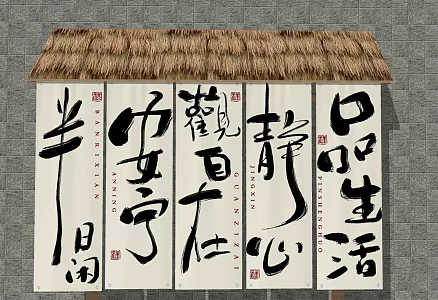 半日闲
BANRIXIAN
安宁
ANNING
觀自在
GUANZIZAI
静心
JINGXIN
品生活
PINSHENGHUO